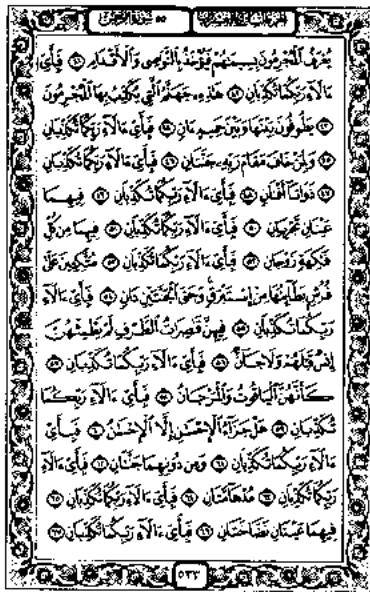 الجزء السابع والعشرون ٥٥ سورة الرحمن
يُعْرَفُ ٱلْمُجْرِمُونَ بِسِيمَٰهُمْ فَيُؤْخَذُ بِٱلنَّوَٰصِى وَٱلْأَقْدَامِ ٤١ فَبِأَىِّ
ءَالَآءِ رَبِّكُمَا تُكَذِّبَانِ ٤٢ هَٰذِهِۦ جَهَنَّمُ ٱلَّتِى يُكَذِّبُ بِهَا ٱلْمُجْرِمُونَ
٤٣ يَطُوفُونَ بَيْنَهَا وَبَيْنَ حَمِيمٍ ءَانٍ ٤٤ فَبِأَىِّ ءَالَآءِ رَبِّكُمَا تُكَذِّبَانِ
٤٥ وَلِمَنْ خَافَ مَقَامَ رَبِّهِۦ جَنَّتَانِ ٤٦ فَبِأَىِّ ءَالَآءِ رَبِّكُمَا تُكَذِّبَانِ
٤٧ ذَوَاتَآ أَفْنَانٍ ٤٨ فَبِأَىِّ ءَالَآءِ رَبِّكُمَا تُكَذِّبَانِ ٤٩ فِيهِمَا
عَيْنَانِ تَجْرِيَانِ ٥٠ فَبِأَىِّ ءَالَآءِ رَبِّكُمَا تُكَذِّبَانِ ٥١ فِيهِمَا مِن كُلِّ
فَٰكِهَةٍ زَوْجَانِ ٥٢ فَبِأَىِّ ءَالَآءِ رَبِّكُمَا تُكَذِّبَانِ ٥٣ مُتَّكِـِٔينَ عَلَىٰ
فُرُشٍۭ بَطَآئِنُهَا مِنْ إِسْتَبْرَقٍ وَجَنَى ٱلْجَنَّتَيْنِ دَانٍ ٥٤ فَبِأَىِّ ءَالَآءِ
رَبِّكُمَا تُكَذِّبَانِ ٥٥ فِيهِنَّ قَٰصِرَٰتُ ٱلطَّرْفِ لَمْ يَطْمِثْهُنَّ
إِنسٌ قَبْلَهُمْ وَلَا جَآنٌّ ٥٦ فَبِأَىِّ ءَالَآءِ رَبِّكُمَا تُكَذِّبَانِ ٥٧
كَأَنَّهُنَّ ٱلْيَاقُوتُ وَٱلْمَرْجَانُ ٥٨ فَبِأَىِّ ءَالَآءِ رَبِّكُمَا
تُكَذِّبَانِ ٥٩ هَلْ جَزَآءُ ٱلْإِحْسَٰنِ إِلَّا ٱلْإِحْسَٰنُ ٦٠ فَبِأَىِّ
ءَالَآءِ رَبِّكُمَا تُكَذِّبَانِ ٦١ وَمِن دُونِهِمَا جَنَّتَانِ ٦٢ فَبِأَىِّ ءَالَآءِ
رَبِّكُمَا تُكَذِّبَانِ ٦٣ مُدْهَآمَّتَانِ ٦٤ فَبِأَىِّ ءَالَآءِ رَبِّكُمَا تُكَذِّبَانِ ٦٥
فِيهِمَا عَيْنَانِ نَضَّاخَتَانِ ٦٦ فَبِأَىِّ ءَالَآءِ رَبِّكُمَا تُكَذِّبَانِ ٦٧
٥٣٣